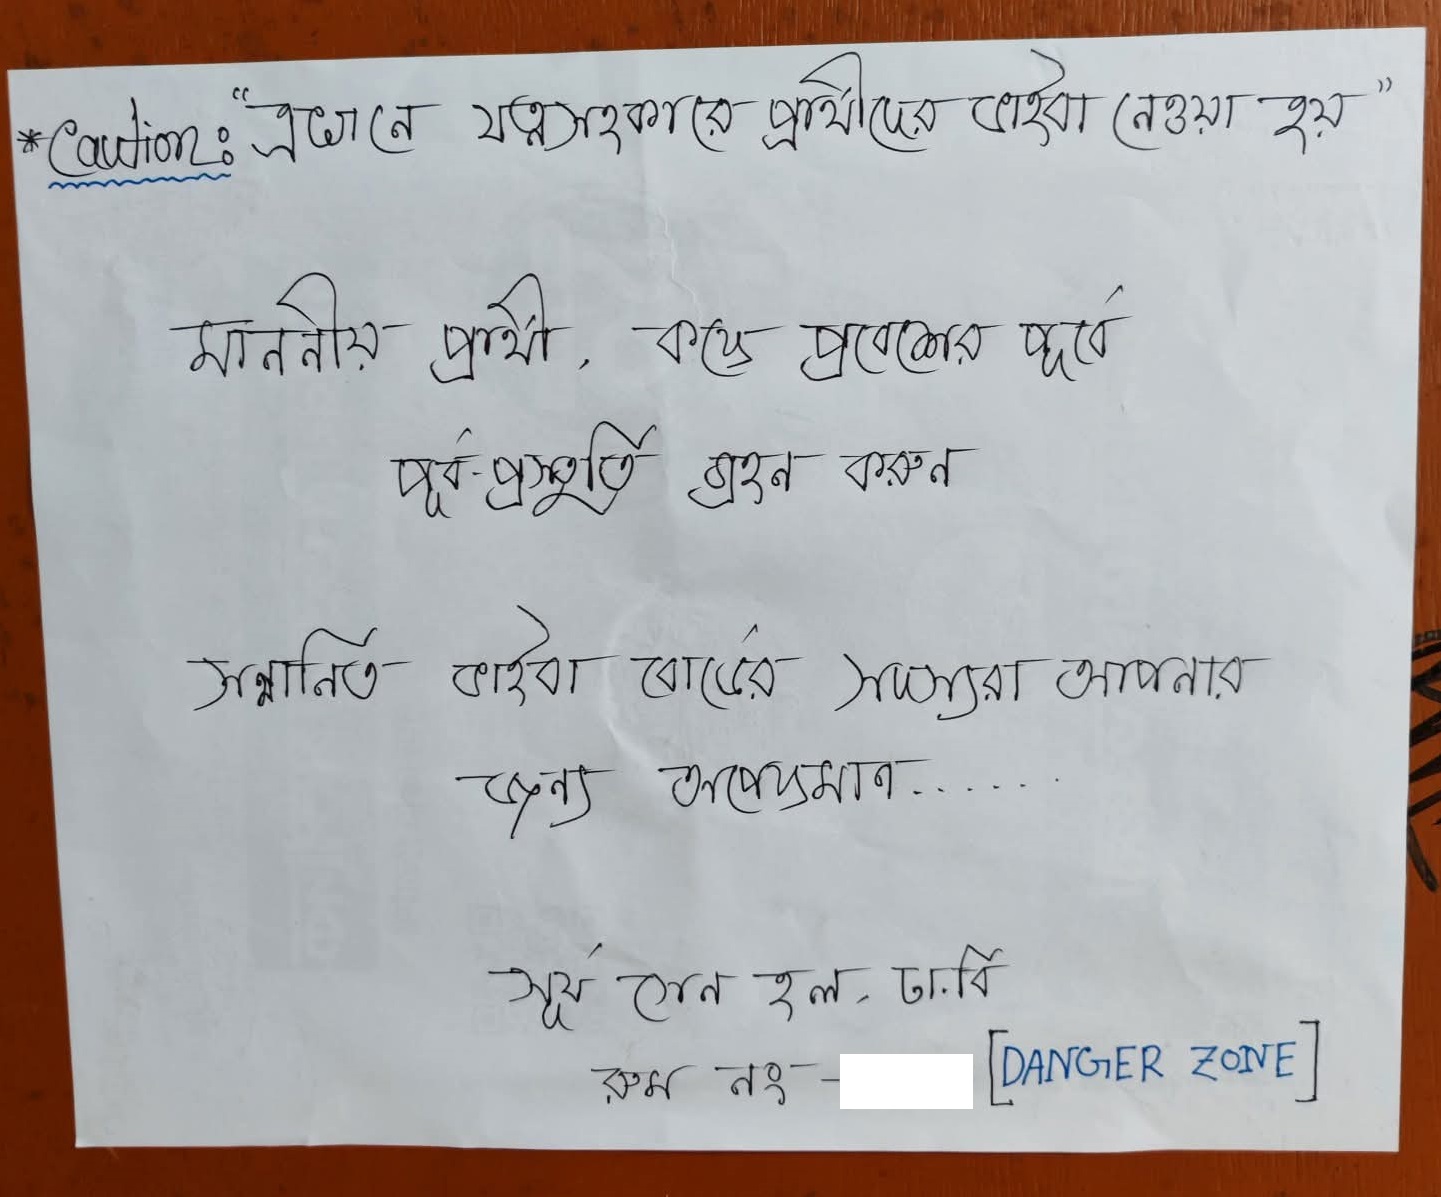 *Caution: "এখানে যত্নসহকারে প্রার্থীদের ভাইবা নেওয়া হয়"
মাননীয় প্রার্থী, কক্ষে প্রবেশের পূর্বে
পূর্ব-প্রস্তুতি গ্রহন করুন
সম্মানিত ভাইবা বোর্ডের সদস্যরা আপনার
জন্য অপেক্ষমান......
সূর্য সেন হল, ঢা.বি
রুম নং - [DANGER ZONE]